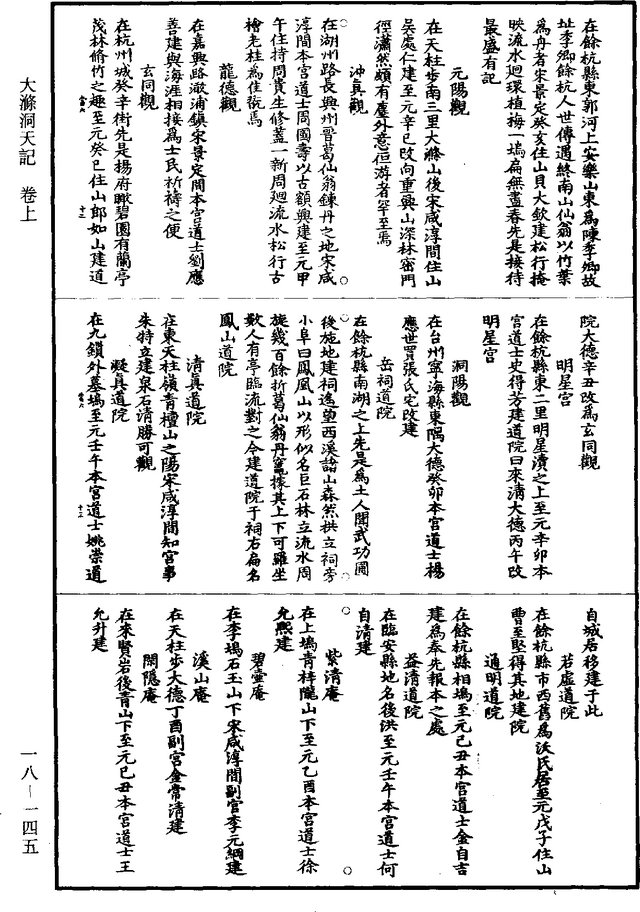 大滌洞天記　卷上
一八—一四五
在餘杭縣東郭河上安樂山東為陳李卿故
址李卿餘杭人世傳遇終南山仙翁以竹葉
為舟者宋景定癸亥住山貝大欽建松行掩
映流水迴環植梅一塢扁無盡春先是接待
最盛有記
元陽觀
在天柱步南三里大滌山後宋咸淳間住山
吳處仁建至元辛巳改向重興山深林密門
徑瀟然頗有塵外意但游者罕至焉
沖真觀
在湖州路長興州晉葛仙翁鍊丹之地宋咸
淳間本宮道士周國壽以古額興建至元甲
午住持周貴生修蓋一新周迴流水松行古
檜老桂為佳玩焉
龍德觀
在嘉興路澉浦鎮宋景定間本宮道士劉應
善建與海涯相接為士民祈禱之便
玄同觀
在杭州城癸辛街先是楊府瞰碧園有蘭亭
茂林脩竹之趣至元癸巳住山郎如山建道
院大德辛丑改為玄同觀
明星宮
在餘杭縣東二里明星瀆之上至元辛卯本
宮道士史得芳建道院曰來清大德丙午改
明星宮
洞陽觀
在台州寧海縣東隅大德癸卯本宮道士楊
應世買張氏宅改建
岳祠道院
在餘杭縣南湖之上先是為土人關武功園
後施地建祠遙望西溪諸山森然拱立祠旁
小阜曰鳳凰山以形似名巨石林立流水周
旋幾百餘折葛仙翁丹竃據其上下可羅坐
數人有亭臨流對之今建道院于祠右扁名
鳳山道院
清真道院
在東天柱嶺青檀山之陽宋咸淳間知宮事
朱特立建泉石清勝可觀
凝真道院
在九鎖外墓塢至元壬午本宮道士姚崇道
自城居移建于此
若虛道院
在餘杭縣市西舊為沃氏居至元戊子住山
曹至堅得其地建院
通明道院
在餘杭縣相塢至元己丑本宮道士金自吉
建為奉先報本之處
益清道院
在臨安縣地名後洪至元壬午本宮道士何
自清建
紫清庵
在上塢青梓隴山下至元乙酉本宮道士徐
允熙建
碧壺庵
在李塢石玉山下宋咸淳間副宮李元綱建
溪山庵
在天柱步大德丁酉副宮金常清建
閑隱庵
在來賢岩後青山下至元己丑本宮道士王
允升建